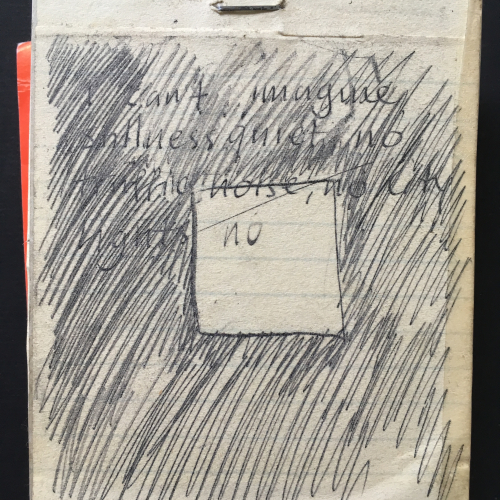 I can't imagine
stillness, quiet, no
traffic noise, no city
lights no